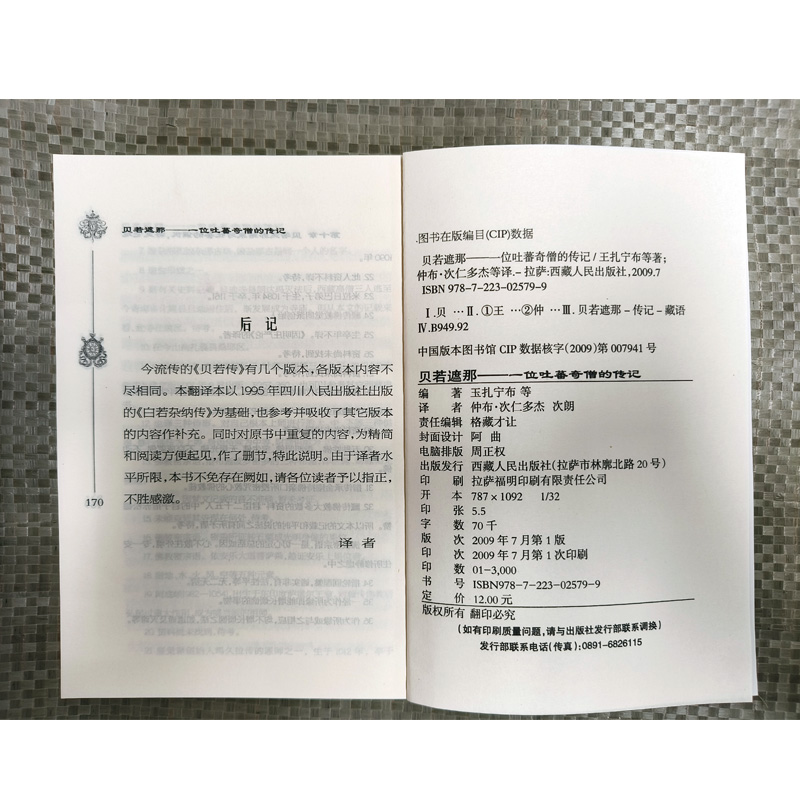 贝若遮那———一位吐蕃奇僧的传记
后记
今流传的《贝若传》有几个版本,各版本内容不
尽相同。本翻译本以1995年四川人民出版社出版
的《白若杂纳传》为基础,也参考并吸收了其它版本
的内容作补充。同时对原书中重复的内容,为精简
和阅读方便起见,作了删节,特此说明。由于译者水
平所限,本书不免存在阙如,请各位读者予以指正,
不胜感激。
译者
170
图书在版编目(CIP)数据
贝若遮那———一位吐蕃奇僧的传记/王扎宁布等著;
仲布·次仁多杰等译.-拉萨:西藏人民出版社,2009.7
ISBN 978-7-223-02579-9
Ⅰ.贝…Ⅱ.①王…②仲…Ⅲ.贝若遮那-传记-藏语
Ⅳ.B949.92
中国版本图书馆CIP数据核字(2009)第007941号
贝若遮那———一位吐蕃奇僧的传记
编 著 玉扎宁布 等
译 者 仲布·次仁多杰 次朗
责任编辑 格藏才让
封面设计 阿 曲
电脑排版 周正权
出版发行 西藏人民出版社(拉萨市林廓北路20号)
印 刷 拉萨福明印刷有限责任公司
开 本 787×1092 1/32
印 张 5.5
字 数 70千
版 次 2009年7月第1版
印 次 2009年7月第1次印刷
印 数 01-3,000
书 号 ISBN978-7-223-02579-9
定 价 12.00元
版权所有 翻印必究
(如有印刷质量问题,请与出版社发行部联系调换)
发行部联系电话(传真):0891-6826115